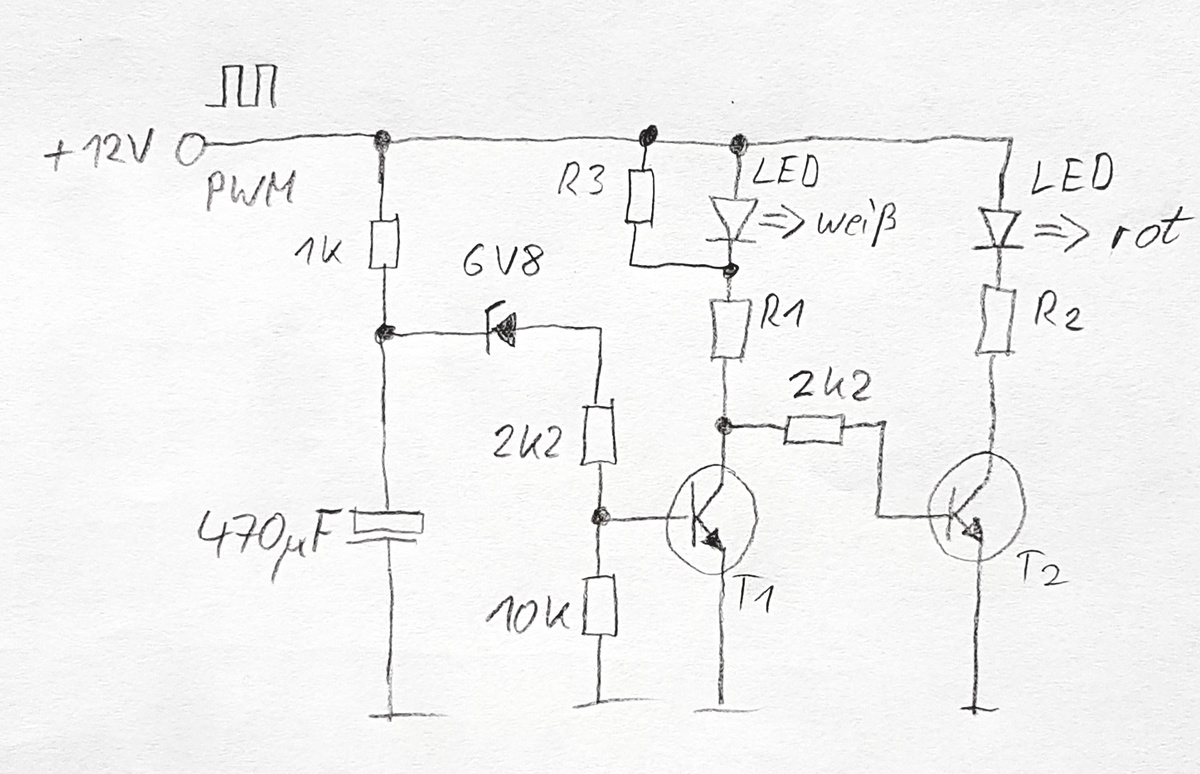 +12V
PWM
R3
LED
=> weiß
LED
=> rot
1K
6V8
R1
R2
2k2
2k2
470µF
10k
T1
T2